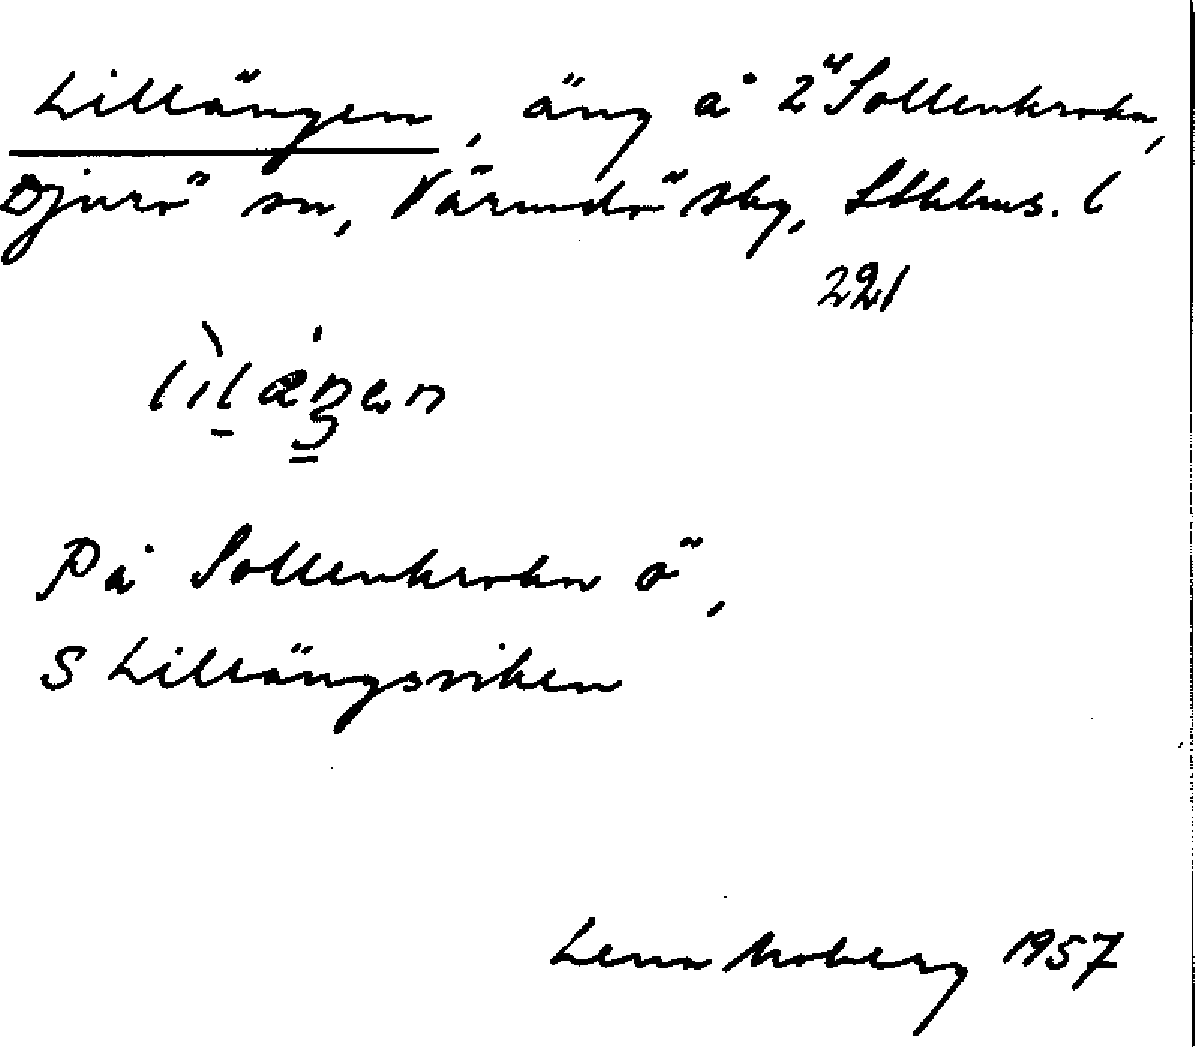 Lillängen, äng å 2² Sollenkroka,
Djurö sn, Värmdö skg, Sthlms. l
221
lìlæŋen
På Sollenkroka ö,
S Lillängsviken
Lena Moberg 1957